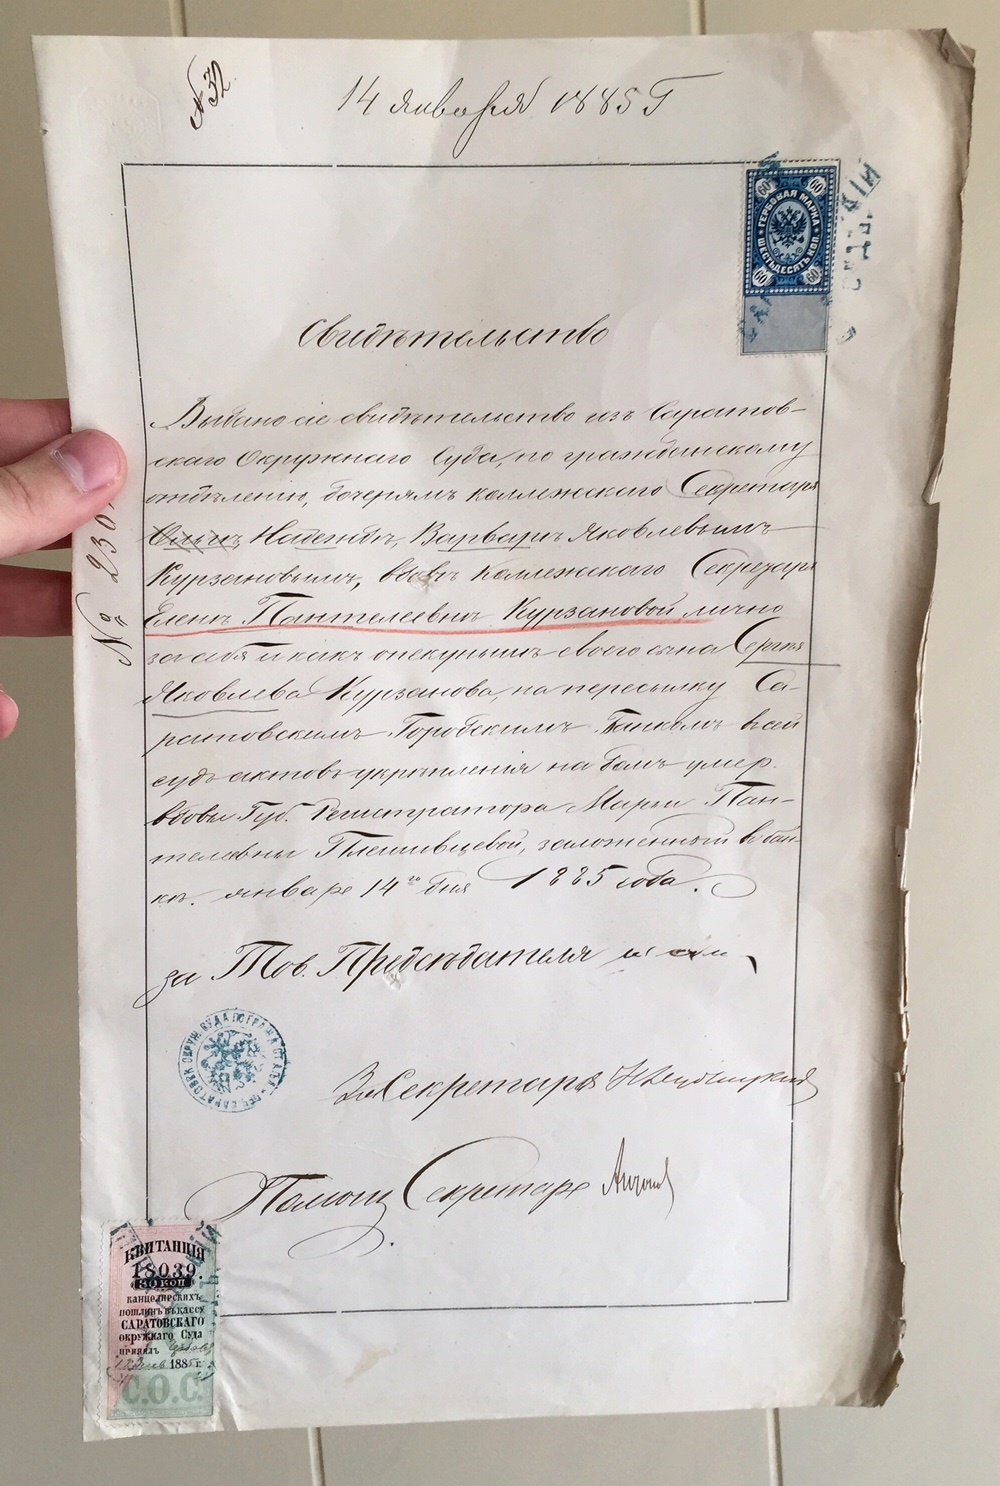 № 32
14 января 1885 Г
60 60
ГЕРБОВАЯ МАРКА
ШЕСТЬДЕСЯТЪ КОП.
60 60
Свидѣтельство
Выдано сіе свидѣтельство изъ Саратов-
скаго Окружнаго Суда, по гражданскому
отдѣленію, дочерямъ коллежскаго Секретаря
Ольгѣ, Надеждѣ, Варварѣ Яковлевымъ
Курзановымъ, вдовѣ Коллежскаго Секретаря
Еленѣ Пантелеевнѣ Курзановой, лично
за себя и какъ опекуншѣ своего сына Сергѣя
Яковлева Курзанова, на пересылку Са-
ратовскимъ Городскимъ Банкомъ въ сей
судъ актовъ укрѣпленія на домъ умер.
вдовы Губ. Регистратора Марьи Пан-
телевны Плешивцевой, заложенный въ бан-
кѣ. января 14го дня 1885 года.
за Тов. Предсѣдателя
За Секретаря
Помощ Секретаря
№ 230
КВИТАНЦІЯ
18039.
30 КОП
канцелярскихъ
пошлинъ въ кассу
САРАТОВСКАГО
окружнаго Суда
принялъ
188 г.
С.О.С.